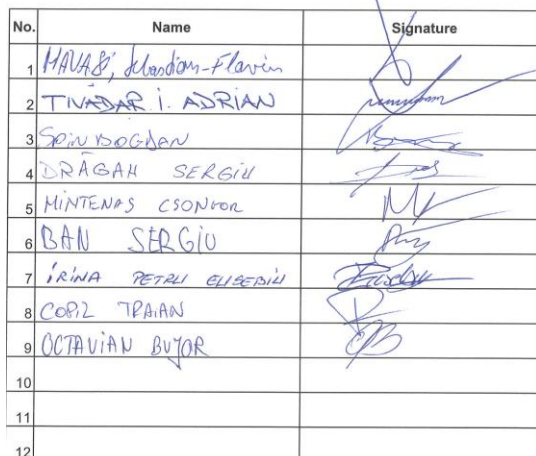 No. Name Signature
1 Sebastian-Flavin
2 TIVADAR I. ADRIAN
3 SPIN BOGDAN
4 DRĂGAN SERGIU
5 MINTENAS CSONGOR
6 BAN SERGIU
7 IRINA PETRU EUSEBIU
8 COPIL TRAIAN
9 OCTAVIAN BUJOR
10
11
12